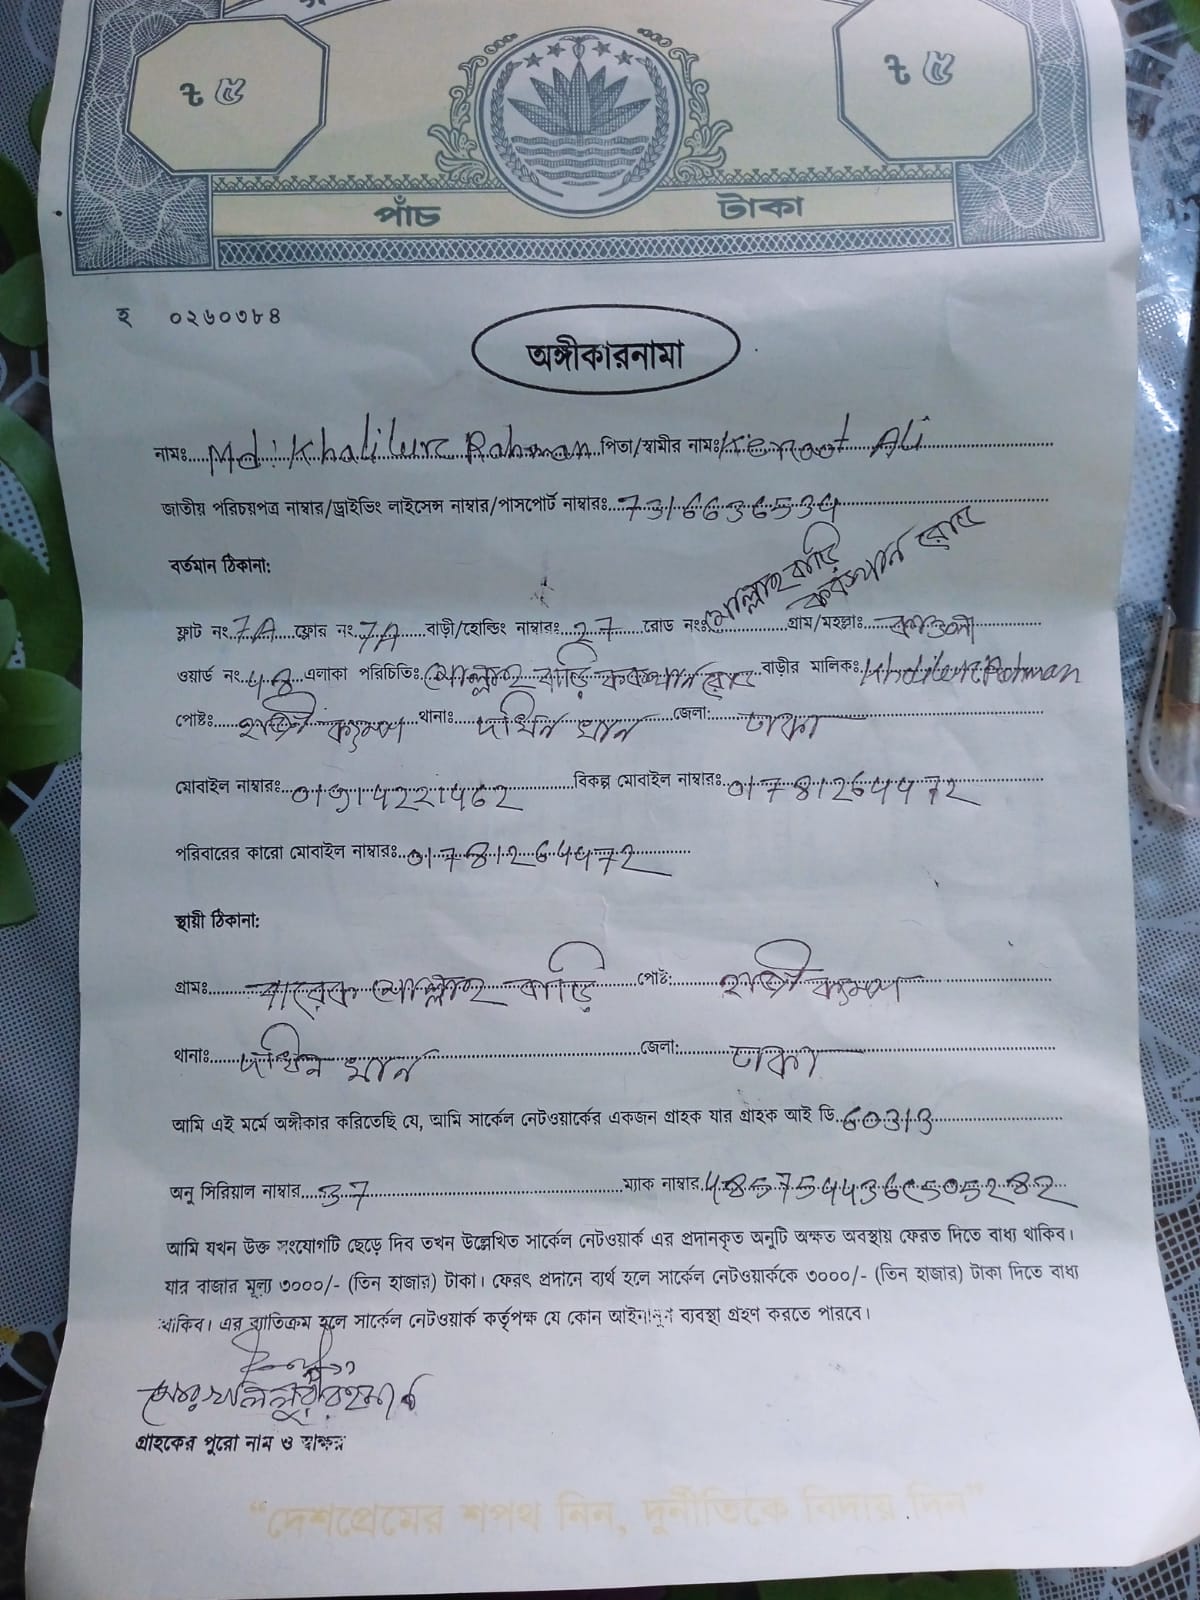 ৳ ৫
৳ ৫
পাঁচ টাকা
হ ০২৬০৩৮৪
অঙ্গীকারনামা
নামঃ Md: Khalilur Rahman পিতা/স্বামীর নামঃ Keramot Ali
জাতীয় পরিচয়পত্র নাম্বার/ড্রাইভিং লাইসেন্স নাম্বার/পাসপোর্ট নাম্বারঃ
বর্তমান ঠিকানা:
মোল্লার বাড়ি
কবরস্থান রোড
ফ্লাট নং 7A ফ্লোর নং 7A বাড়ী/হোল্ডিং নাম্বারঃ 27 রোড নংঃ গ্রাম/মহল্লাঃ
ওয়ার্ড নং 48 এলাকা পরিচিতিঃ মোল্লার বাড়ি কবরস্থান রোড বাড়ীর মালিকঃ Khalilur Rahman
পোষ্টঃ হাজী ক্যাম্প থানাঃ দক্ষিন খান জেলা: ঢাকা
মোবাইল নাম্বারঃ বিকল্প মোবাইল নাম্বারঃ
পরিবারের কারো মোবাইল নাম্বারঃ
স্থায়ী ঠিকানা:
গ্রামঃ মোল্লার বাড়ি পোষ্ট: হাজী ক্যাম্প
থানাঃ দক্ষিন খান জেলা: ঢাকা
আমি এই মর্মে অঙ্গীকার করিতেছি যে, আমি সার্কেল নেটওয়ার্কের একজন গ্রাহক যার গ্রাহক আই ডি. 60313
অনু সিরিয়াল নাম্বার 37 ম্যাক নাম্বার
আমি যখন উক্ত সংযোগটি ছেড়ে দিব তখন উল্লেখিত সার্কেল নেটওয়ার্ক এর প্রদানকৃত অনুটি অক্ষত অবস্থায় ফেরত দিতে বাধ্য থাকিব।
যার বাজার মূল্য ৩০০০/- (তিন হাজার) টাকা। ফেরৎ প্রদানে ব্যর্থ হলে সার্কেল নেটওয়ার্ককে ৩০০০/- (তিন হাজার) টাকা দিতে বাধ্য
থাকিব। এর ব্যতিক্রম হলে সার্কেল নেটওয়ার্ক কর্তৃপক্ষ যে কোন আইনানুগ ব্যবস্থা গ্রহণ করতে পারবে।
মোঃ খলিলুর রহমান
গ্রাহকের পুরো নাম ও স্বাক্ষর
“দেশপ্রেমের শপথ নিন, দুর্নীতিকে বিদায় দিন”